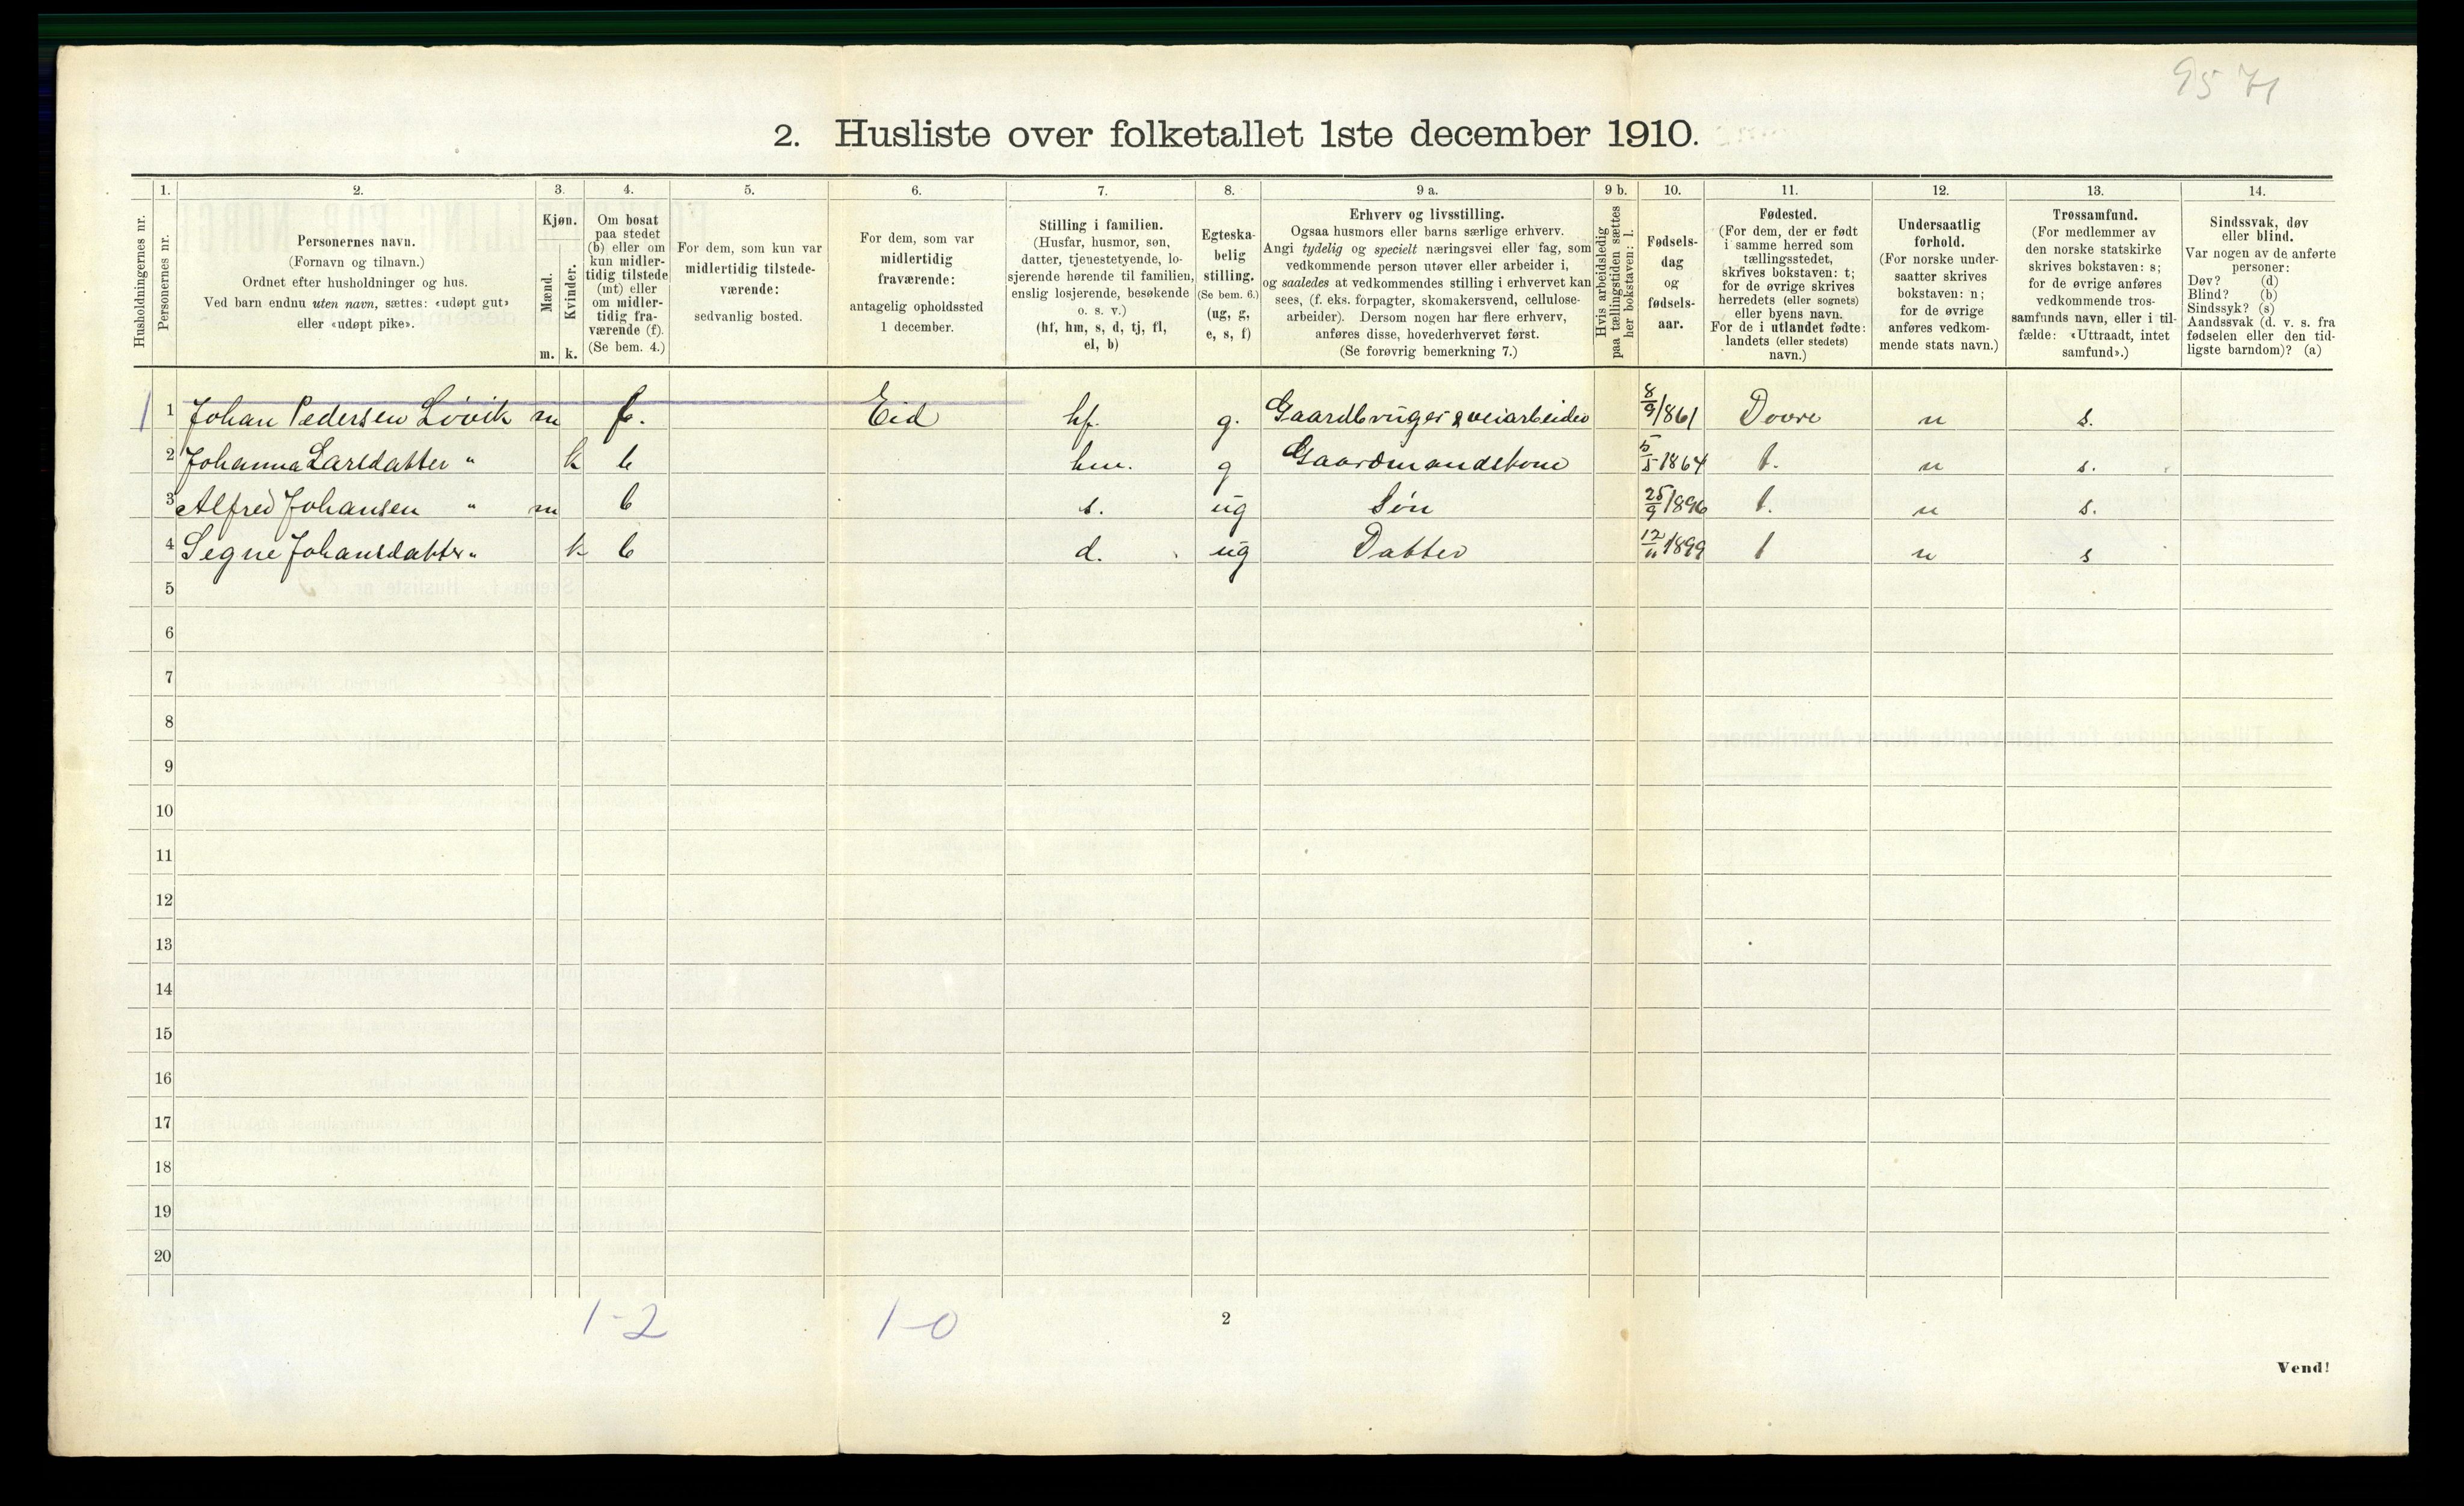 95 71
2. Husliste over folketallet 1ste december 1910.
1. 2. 3. 4. 5. 6. 7. 8. 9 a. 9 b. 10. 11. 12. 13. 14.
Husholdningernes nr.
Personernes nr.
Personernes navn.
(Fornavn og tilnavn.)
Ordnet efter husholdninger og hus.
Ved barn endnu uten navn, sættes: «udøpt gut»
eller «udøpt pike».
Kjøn.
Mænd.
Kvinder.
m. k.
Om bosat
paa stedet
(b) eller om
kun midler-
tidig tilstede
(mt) eller
om midler-
tidig fra-
værende (f).
(Se bem. 4.)
For dem, som kun var
midlertidig tilstede-
værende:
sedvanlig bosted.
For dem, som var
midlertidig
fraværende:
antagelig opholdssted
1 december.
Stilling i familien.
(Husfar, husmor, søn,
datter, tjenestetyende, lo-
sjerende hørende til familien,
enslig losjerende, besøkende
o. s. v.)
(hf, hm, s, d, tj, fl,
el, b)
Egteska-
belig
stilling.
(Se bem. 6.)
(ug, g,
e, s, f)
Erhverv og livsstilling.
Ogsaa husmors eller barns særlige erhverv.
Angi tydelig og specielt næringsvei eller fag, som
vedkommende person utøver eller arbeider i,
og saaledes at vedkommendes stilling i erhvervet kan
sees, (f. eks. forpagter, skomakersvend, cellulose-
arbeider). Dersom nogen har flere erhverv,
anføres disse, hovederhvervet først.
(Se forøvrig bemerkning 7.)
Hvis arbeidsledig
paa tællingstiden sættes
her bokstaven: l.
Fødsels-
dag
og
fødsels-
aar.
Fødested.
(For dem, der er født
i samme herred som
tællingsstedet,
skrives bokstaven: t;
for de øvrige skrives
herredets (eller sognets)
eller byens navn.
For de i utlandet fødte:
landets (eller stedets)
navn.)
Undersaatlig
forhold.
(For norske under-
saatter skrives
bokstaven: n;
for de øvrige
anføres vedkom-
mende stats navn.)
Trossamfund.
(For medlemmer av
den norske statskirke
skrives bokstaven: s;
for de øvrige anføres
vedkommende tros-
samfunds navn, eller i til-
fælde: «Uttraadt, intet
samfund».)
Sindssvak, døv
eller blind.
Var nogen av de anførte
personer:
Døv? (d)
Blind? (b)
Sindssyk? (s)
Aandssvak (d. v. s. fra
fødselen eller den tid-
ligste barndom)? (a)
1 1 Johan Pedersen Lövik m f. Eid hf. g. Gaardbruger & veiarbeider 8/9 1861 Dovre n s.
2 Johanna Larsdatter " k b hm. g Gaardmandskone 5/5 1864 t. n s.
3 Alfred Johansen " m b s. ug Sön 25/9 1896 t. n s.
4 Segne Johansdatter " k b d. ug Datter 12/11 1899 t n s
5
6
7
8
9
10
11
12
13
14
15
16
17
18
19
20
1-2 1-0
2
Vend!